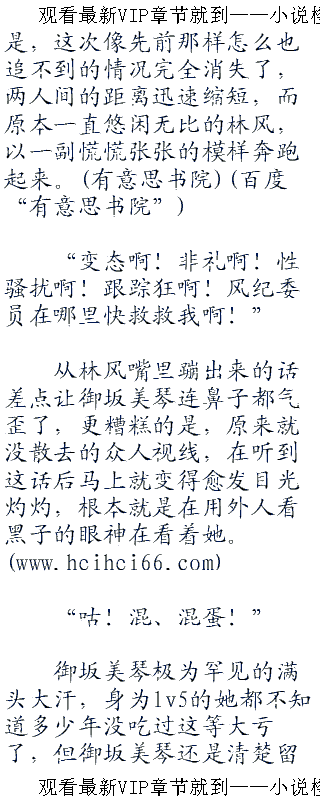 观看最新VIP章节就到——小说
是，这次像先前那样怎么也
追不到的情况完全消失了，
两人间的距离迅速缩短，而
原本一直悠闲无比的林风，
以一副慌慌张张的模样奔跑
起来。(有意思书院)(百度
“有意思书院”)
“变态啊！非礼啊！性
骚扰啊！跟踪狂啊！风纪委
员在哪里快救救我啊！”
从林风嘴里蹦出来的话
差点让御坂美琴连鼻子都气
歪了，更糟糕的是，原来就
没散去的众人视线，在听到
这话后马上就变得愈发目光
灼灼，根本就是在用外人看
黑子的眼神在看着她。
(www.hcihci66.com)
“咕！混、混蛋！”
御坂美琴极为罕见的满
头大汗，身为lv5的她都不知
道多少年没吃过这等大亏
了，但御坂美琴还是清楚留
观看最新VIP章节就到——小说